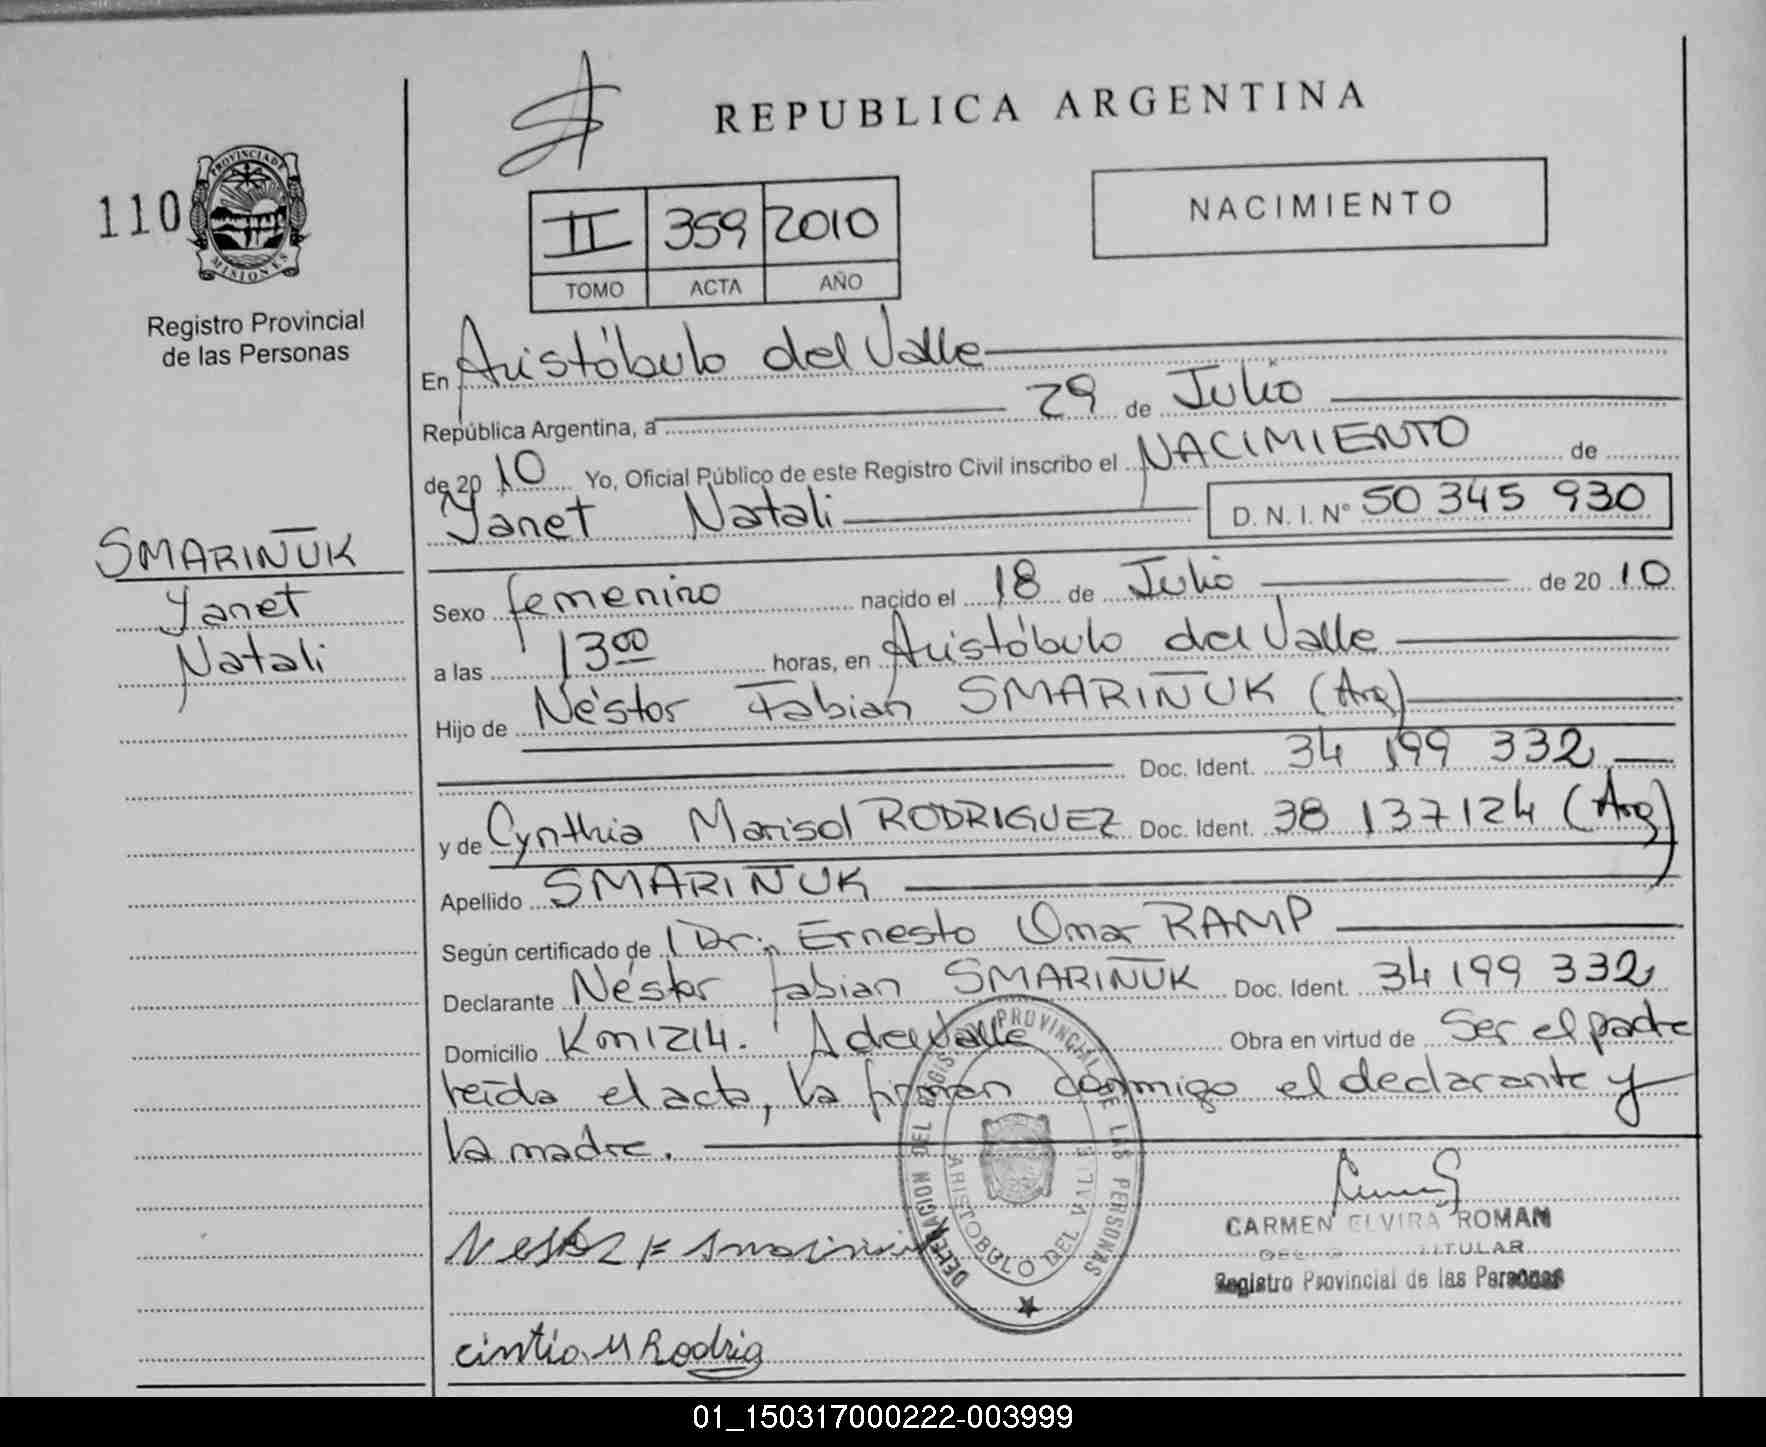 REPUBLICA ARGENTINA
110
PROVINCIA DE
MISIONES
Registro Provincial
de las Personas
II 359 2010
TOMO ACTA AÑO
NACIMIENTO
En Aristóbulo del Valle
República Argentina, a 29 de Julio
de 2010 Yo, Oficial Público de este Registro Civil inscribo el NACIMIENTO de
Yanet Natali D.N.I. Nº 50 345 930
SMARIÑUK
Yanet
Natali
Sexo femenino nacido el 18 de Julio de 2010
a las 13 00 horas, en Aristóbulo del Valle
Hijo de Néstor Fabian SMARIÑUK (Arg)
Doc. Ident. 34 199 332
y de Cynthia Marisol RODRIGUEZ Doc. Ident. 38 137124 (Arg)
Apellido SMARIÑUK
Según certificado de Dr. Ernesto Omar RAMP
Declarante Néstor fabian SMARIÑUK Doc. Ident. 34 199 332
Domicilio Km 1214. A del Valle Obra en virtud de Ser el padre
leída el acta, la firman conmigo el declarante y
la madre.
DELEGACION DEL REGISTRO PROVINCIAL DE LAS PERSONAS
ARISTOBULO DEL VALLE
CARMEN ELVIRA ROMAN
TITULAR
Registro Provincial de las Personas
Nestor F
cintia M Rodrig
01_150317000222-003999